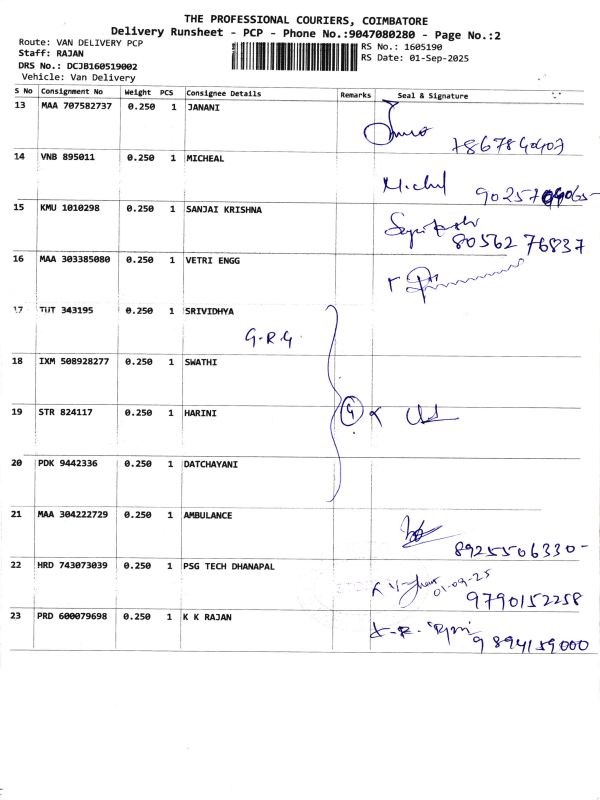 THE PROFESSIONAL COURIERS, COIMBATORE
Delivery Runsheet - PCP - Phone No.:9047080280 - Page No.:2
Route: VAN DELIVERY PCP
Staff: RAJAN
DRS No.: DCJB160519002
Vehicle: Van Delivery
RS No.: 1605190
RS Date: 01-Sep-2025
S No Consignment No Weight PCS Consignee Details Remarks Seal & Signature
13 MAA 707582737 0.250 1 JANANI
7867840407
14 VNB 895011 0.250 1 MICHEAL
Michel
15 KMU 1010298 0.250 1 SANJAI KRISHNA
80562 76837
16 MAA 303385080 0.250 1 VETRI ENGG
17 TUT 343195 0.250 1 SRIVIDHYA
G.R.G
18 IXM 508928277 0.250 1 SWATHI
19 STR 824117 0.250 1 HARINI
4
20 PDK 9442336 0.250 1 DATCHAYANI
21 MAA 304222729 0.250 1 AMBULANCE
8925506330-
22 HRD 743073039 0.250 1 PSG TECH DHANAPAL
01-09-25
9790152258
23 PRD 600079698 0.250 1 K K RAJAN
9894159000